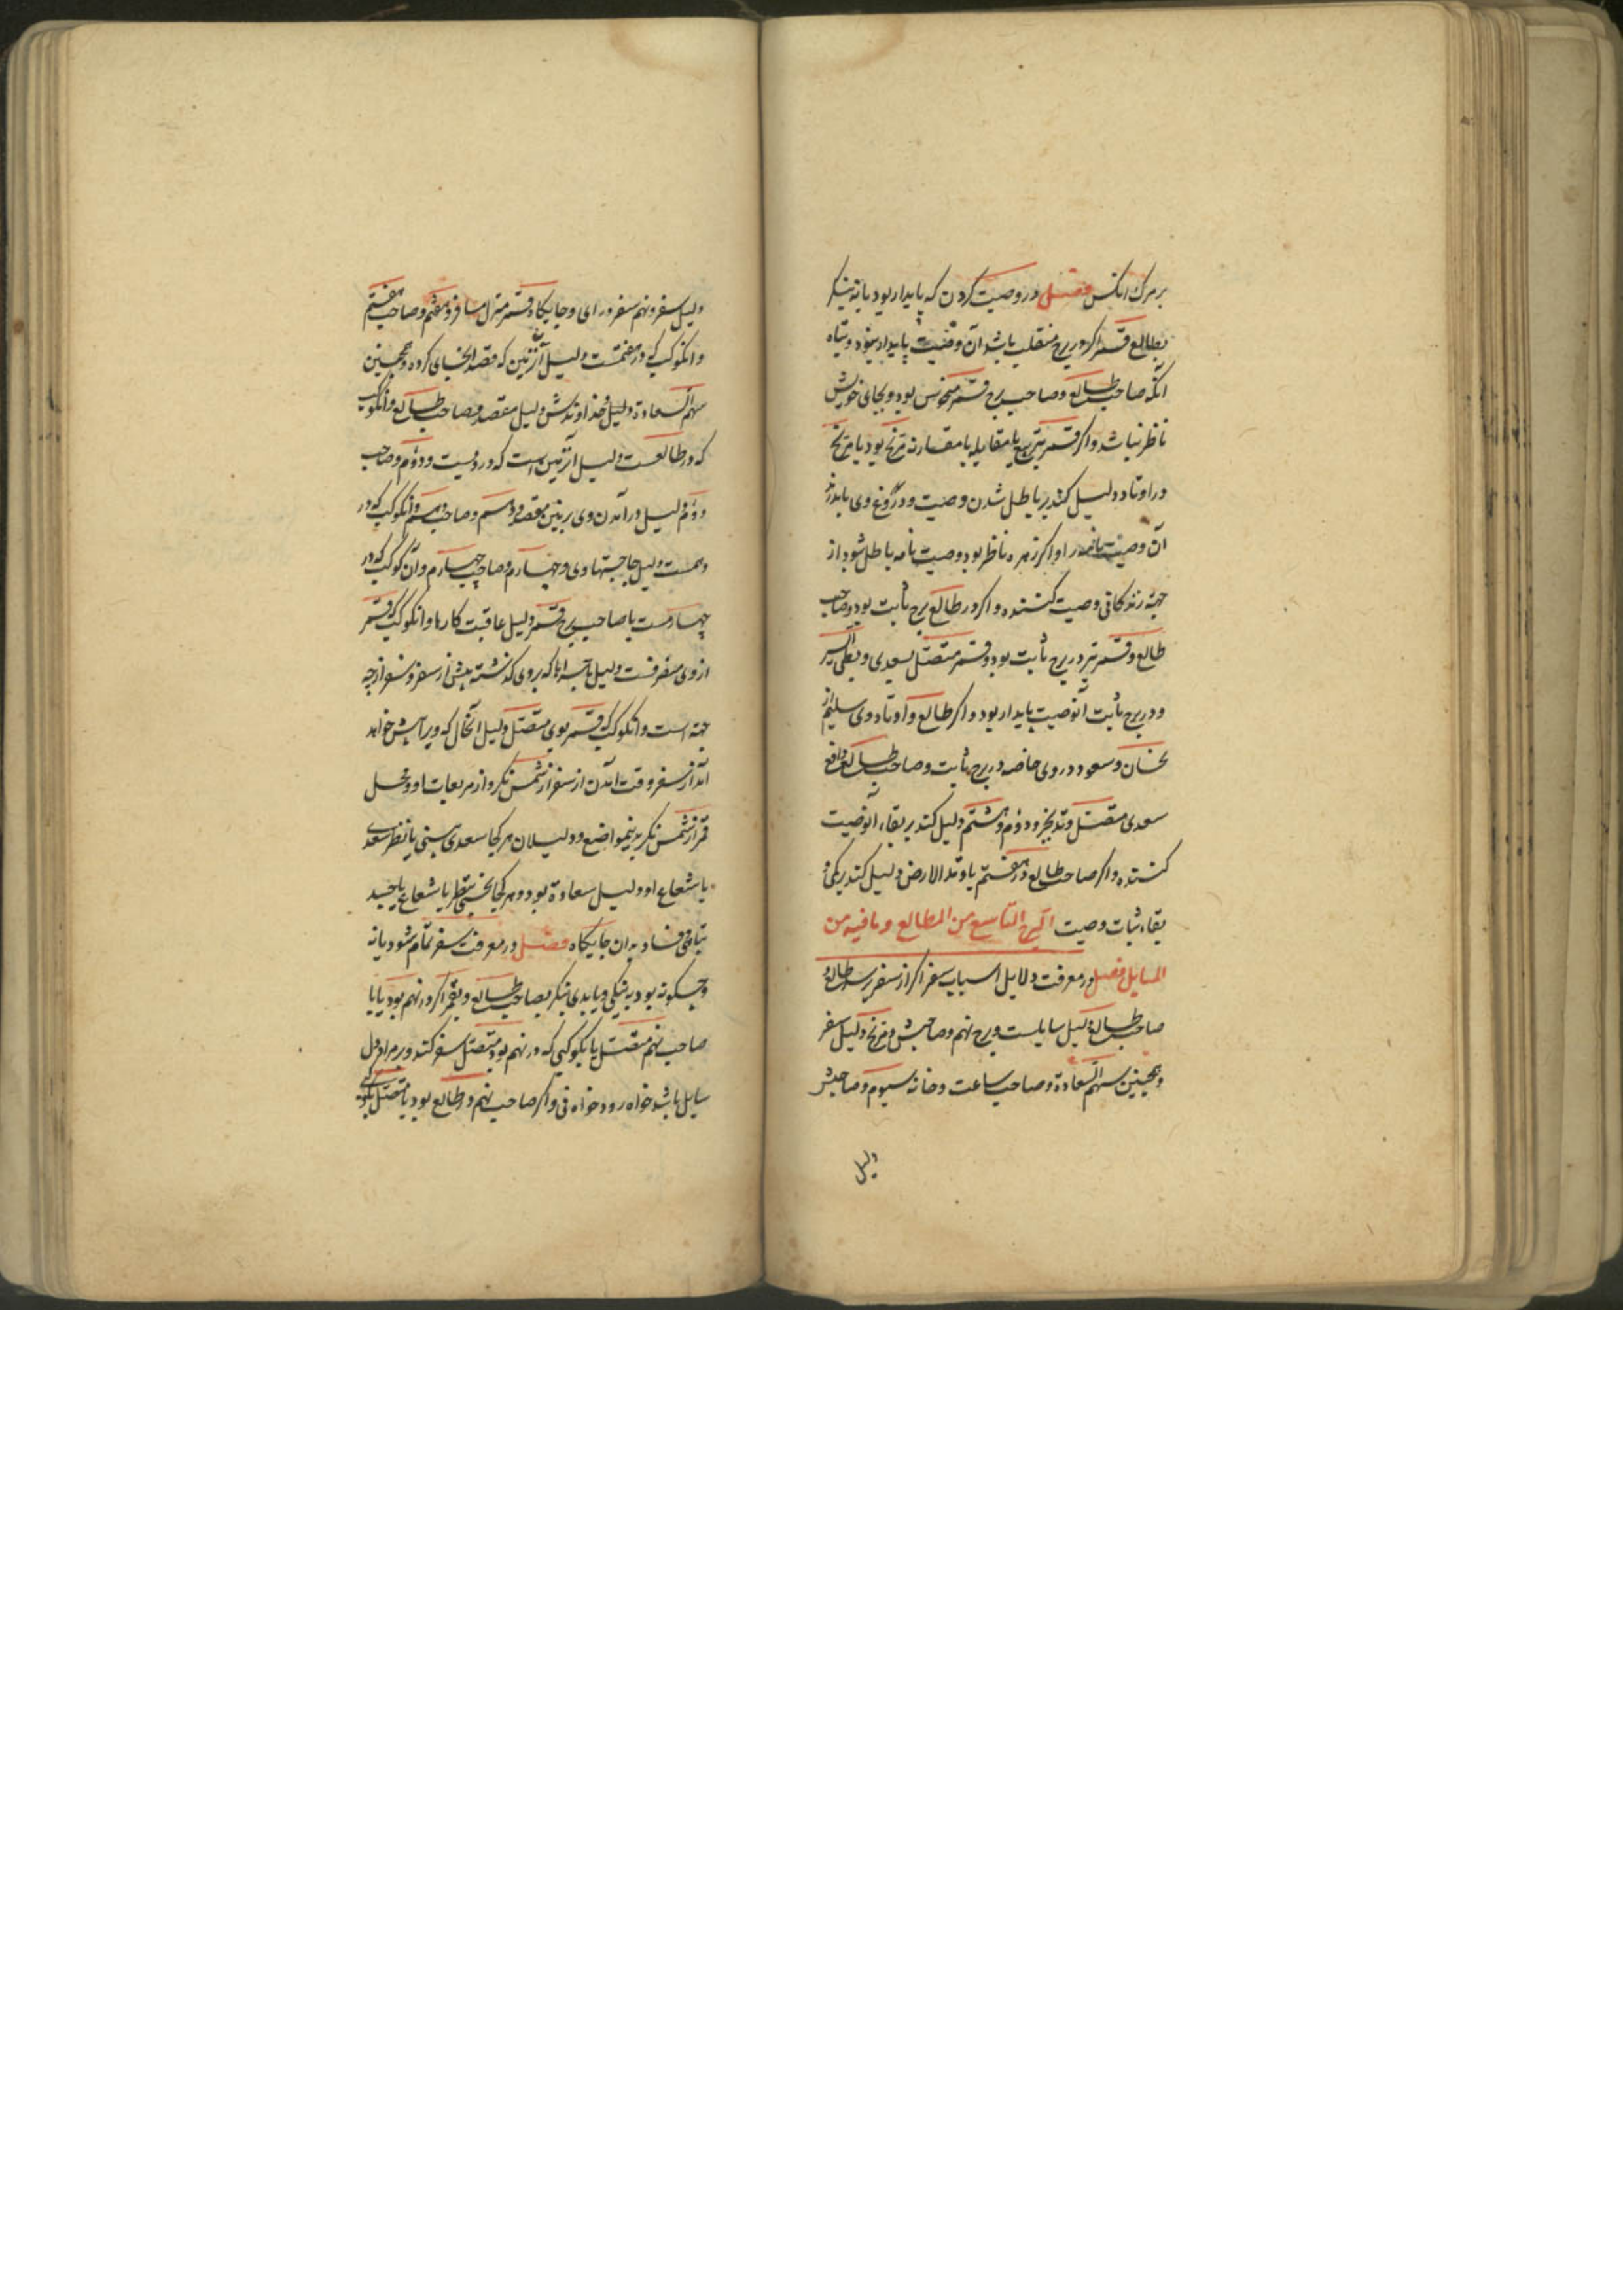 بر مرگ انکس فصل در وصیت کردن که پایدار بود یا نه بنکر
بطالع و قمر اکر در برج منقلب باشد آن وصیت پایدار نبود و تباه
آنکه صاحب طالع و صاحب برج قمر منحوس بود و بجای خویش
ناظر نباشد و اکر قمر بتربیع یا مقابله یا مقارنه مریخ بود یا مریخ
در اوتاد دلیل کند بر باطل شدن وصیت و دروغ وی
آن وصیت او اکر زهره ناظر بود وصیت نامه باطل شود از
جهة زندکانی وصیت کننده و اکر در طالع برج ثابت بود و صاحب
طالع و قمر نیز در برج ثابت بود و قمر متصل بسعدی و بطی السیر
و در برج ثابت آنوصیت پایدار بود و اکر طالع و اوتاد وی سلیم از
نحسان و سعود در وی خاصه در برج ثابت و صاحب طالع
سعدی متصل و دوم و هشتم دلیل کند بر بقاء آنوصیت
کننده و اکر صاحب طالع در هفتم یا وتد الارض دلیل کند
بقاء ثبات وصیت البرج التاسع من المطالع و ما فیه من
المسایل فصل در معرفت دلایل اسباب سفر اکر از سفر پرسد طالع و
صاحب طالع دلیل سایلست و برج نهم و صاحبش و مریخ دلیل سفر
و همچنین سهم السعادة و صاحب ساعت و خانه سیوم و صاحبش
دلیل
دلیل سفر و نهم سفر و رای و جایگاه قمر منزل مسافر و هفتم و صاحب هفتم
و انکوکب که در هفتمست دلیل آن زمین که قصد انجای کرده و همچنین
سهم السعادة دلیل و خداوندش دلیل مقصد و صاحب طالع و انکوکب
که در طالعست دلیل آن زمین است که در ویست و دوم و صاحب
دوم دلیل درآمدن وی بزمین مقصد و دهم و صاحب دهم و انکوکب که در
دهمست دلیل حاجتهاء وی و چهارم و صاحب چهارم و آن کوکب که در
چهارمست یا صاحب برج قمر دلیل عاقبت کارها و انکوکب که قمر
از وی منصرفست دلیل که بروی کذشته پیش از سفر و سفر از چه
جهة است و انکوکب که قمر بوی متصل دلیل آنحال که ویرا پیش خواهد
آمد از سفر و وقت آمدن از سفر از شمس نکر و از مربعات او و زحل
قمر از شمس نکر بدینمواضع و دلیلان هر کجا سعدی بینی یا نظر سعد
یا شعاع او دلیل سعادة بود و هر کجا نحس بنظر یا شعاع یا جسد
تباهی و فساد بدان جایگاه فصل در معرفت سفر تمام شود یا نه
و چکونه بود به نیکی و یا بدی نیکر بصاحب طالع و بقمر اکر در نهم بود یا با
صاحب نهم متصل یا بکوکبی که در نهم بود متصل سفر کند و بر مراد دل
سایل باشد خواه رود خواه نی و اکر صاحب نهم در طالع بود یا متصل بکوکبی